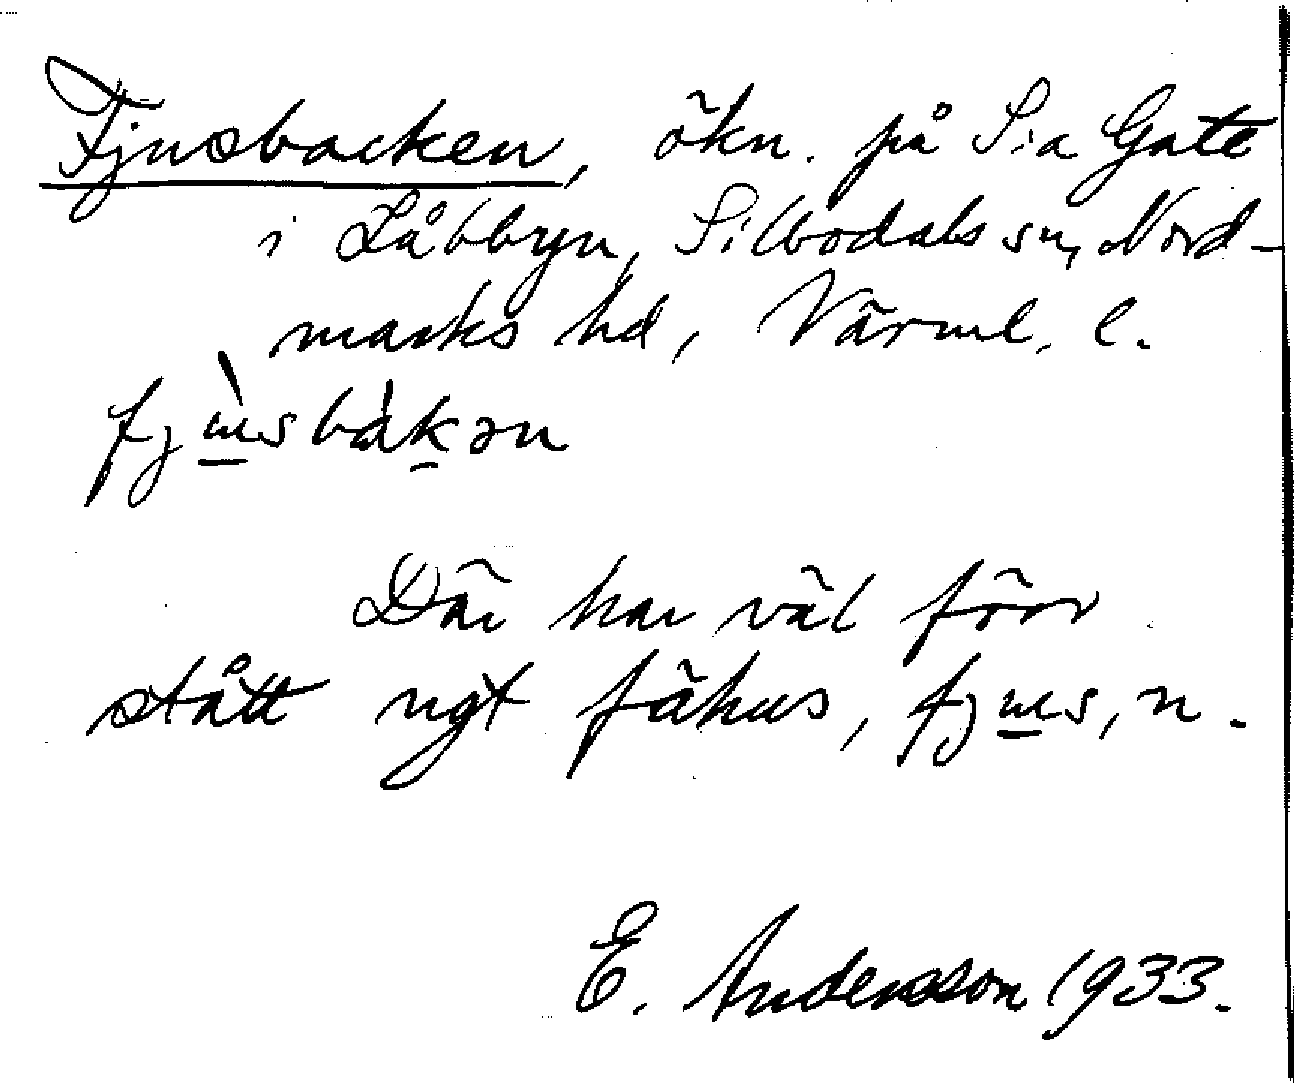 Fjusbacken, ökn. på S:a Gate
i Låbbyn, Silbodals sn, Nord-
marks hd, Värml. l.
fju̲sbak̲ən
Där har väl förr
stått ngt fähus, fju̲s, n.
E. Andersson 1933.